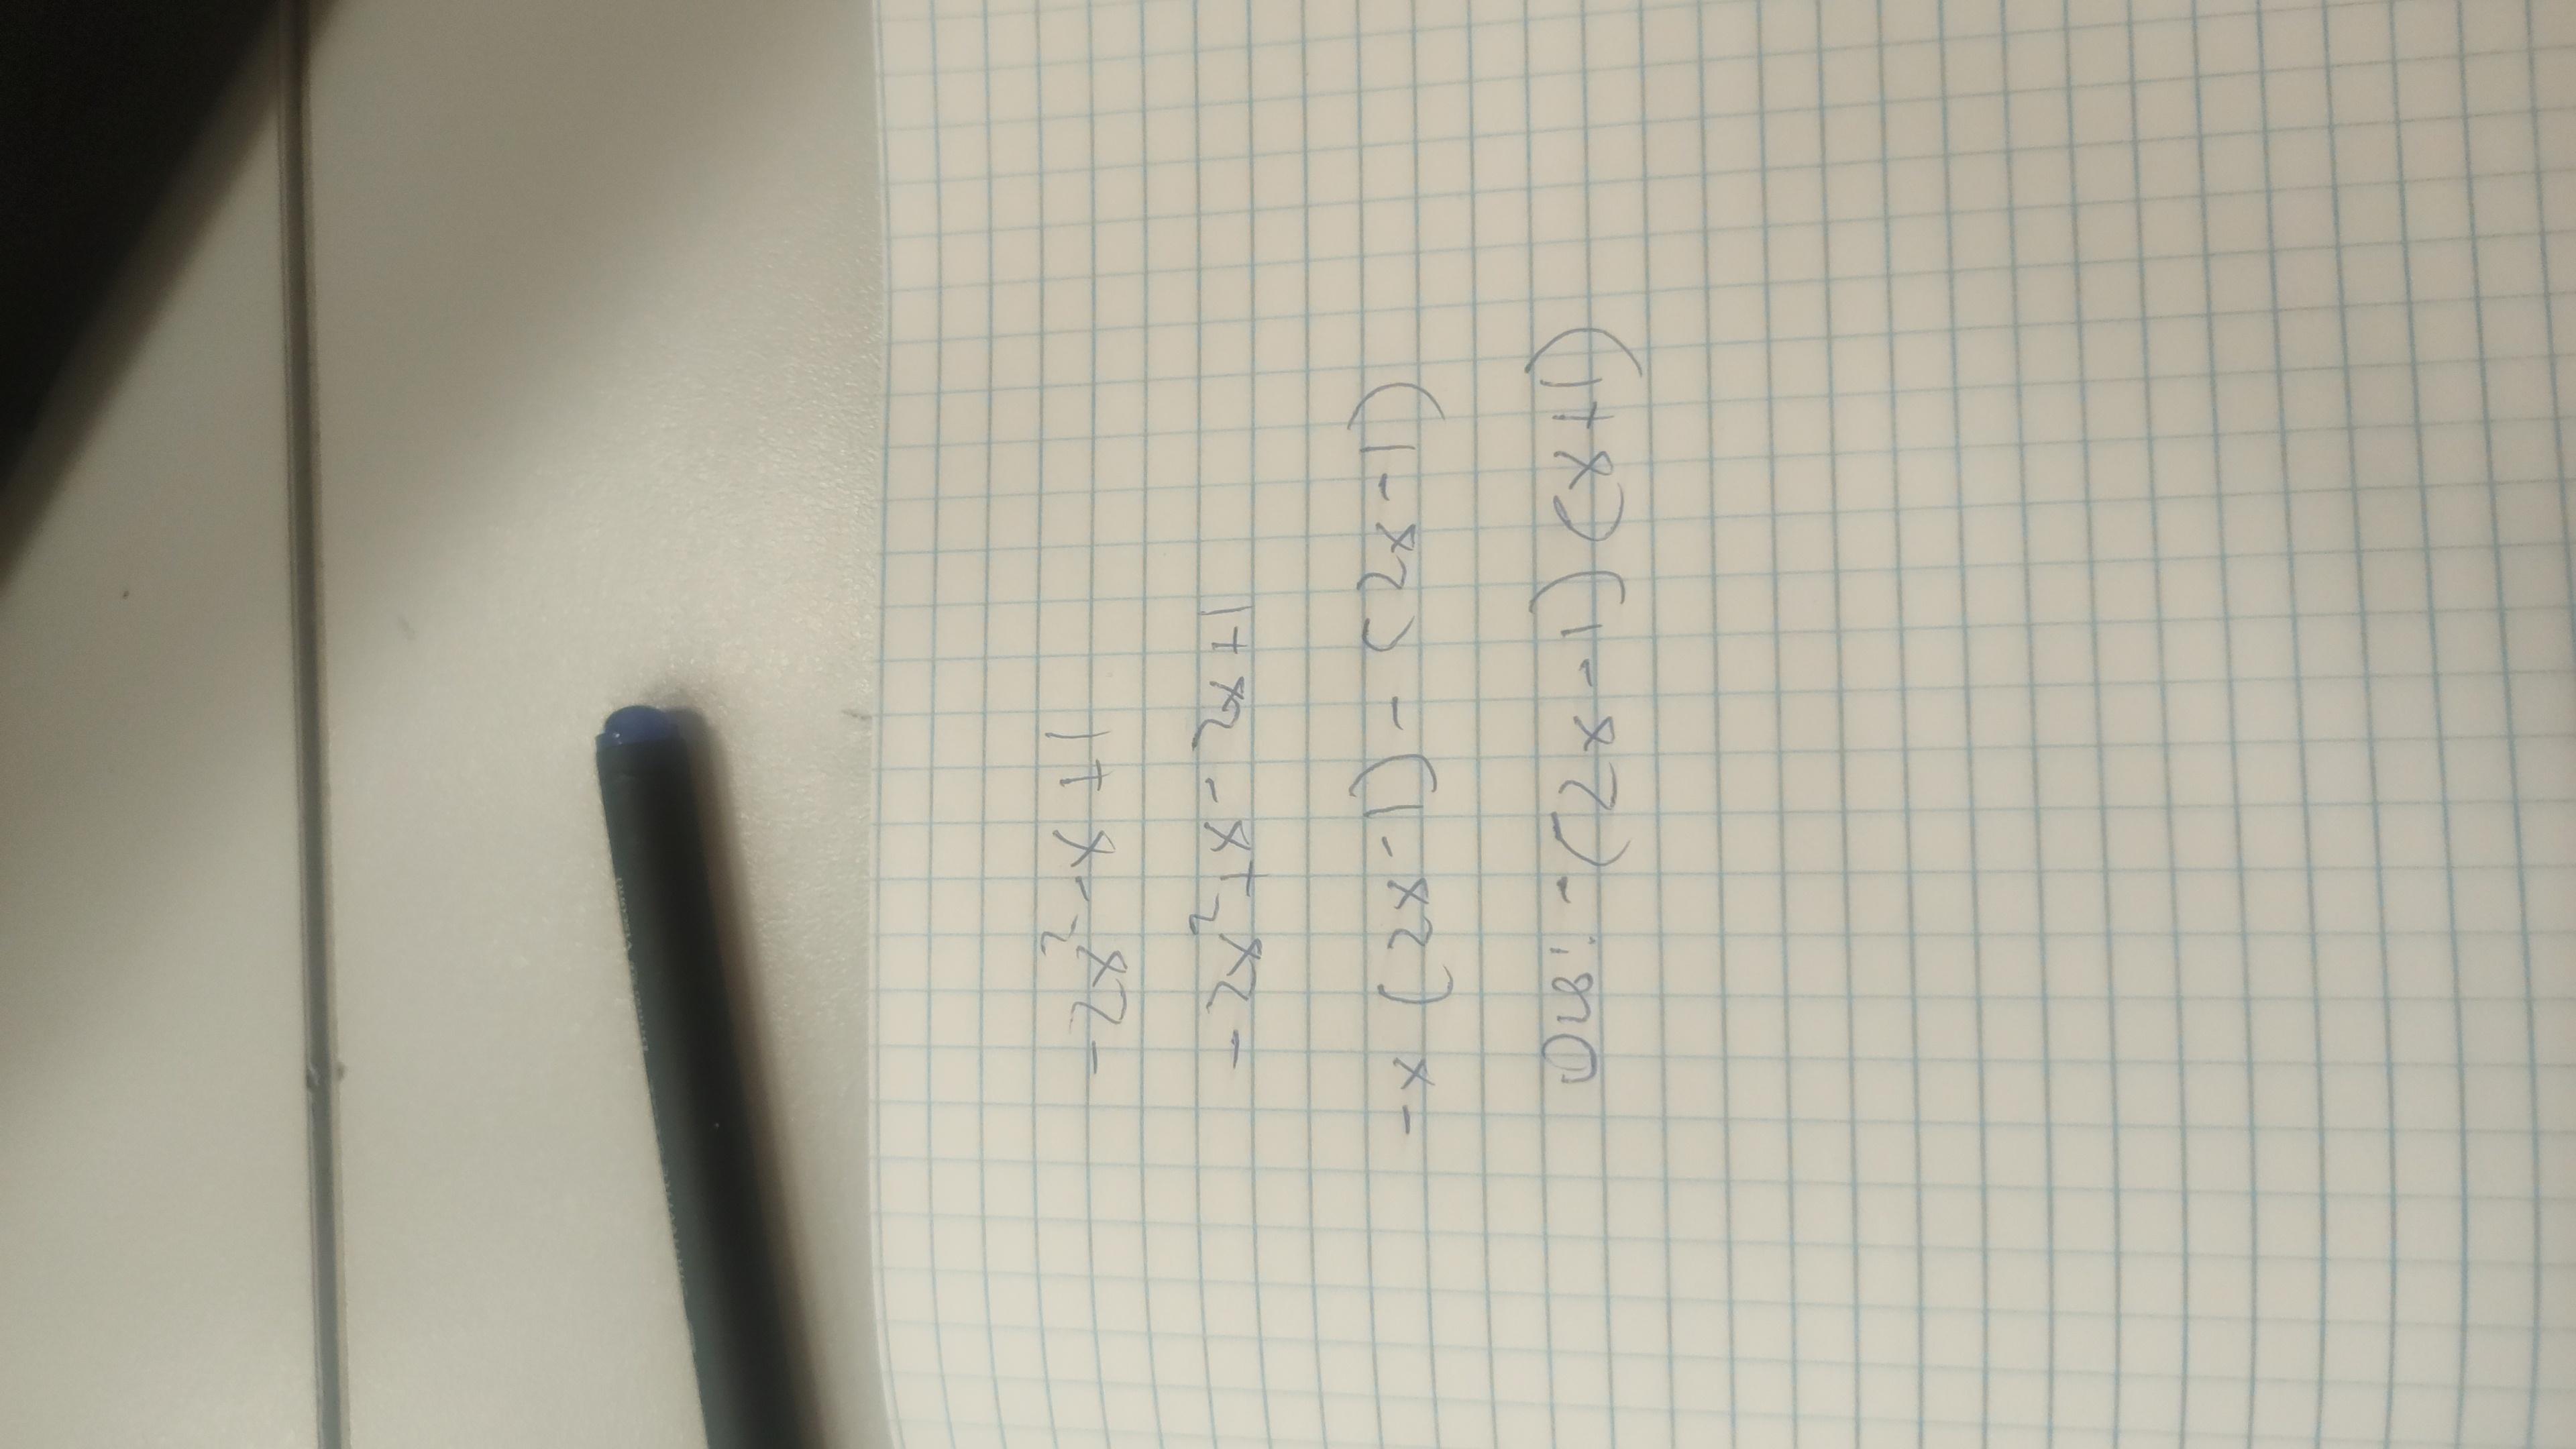 -2x²-x+1
-2x²+x-2x+1
-x(2x-1)-(2x-1)
Отв: -(2x-1)(x+1)